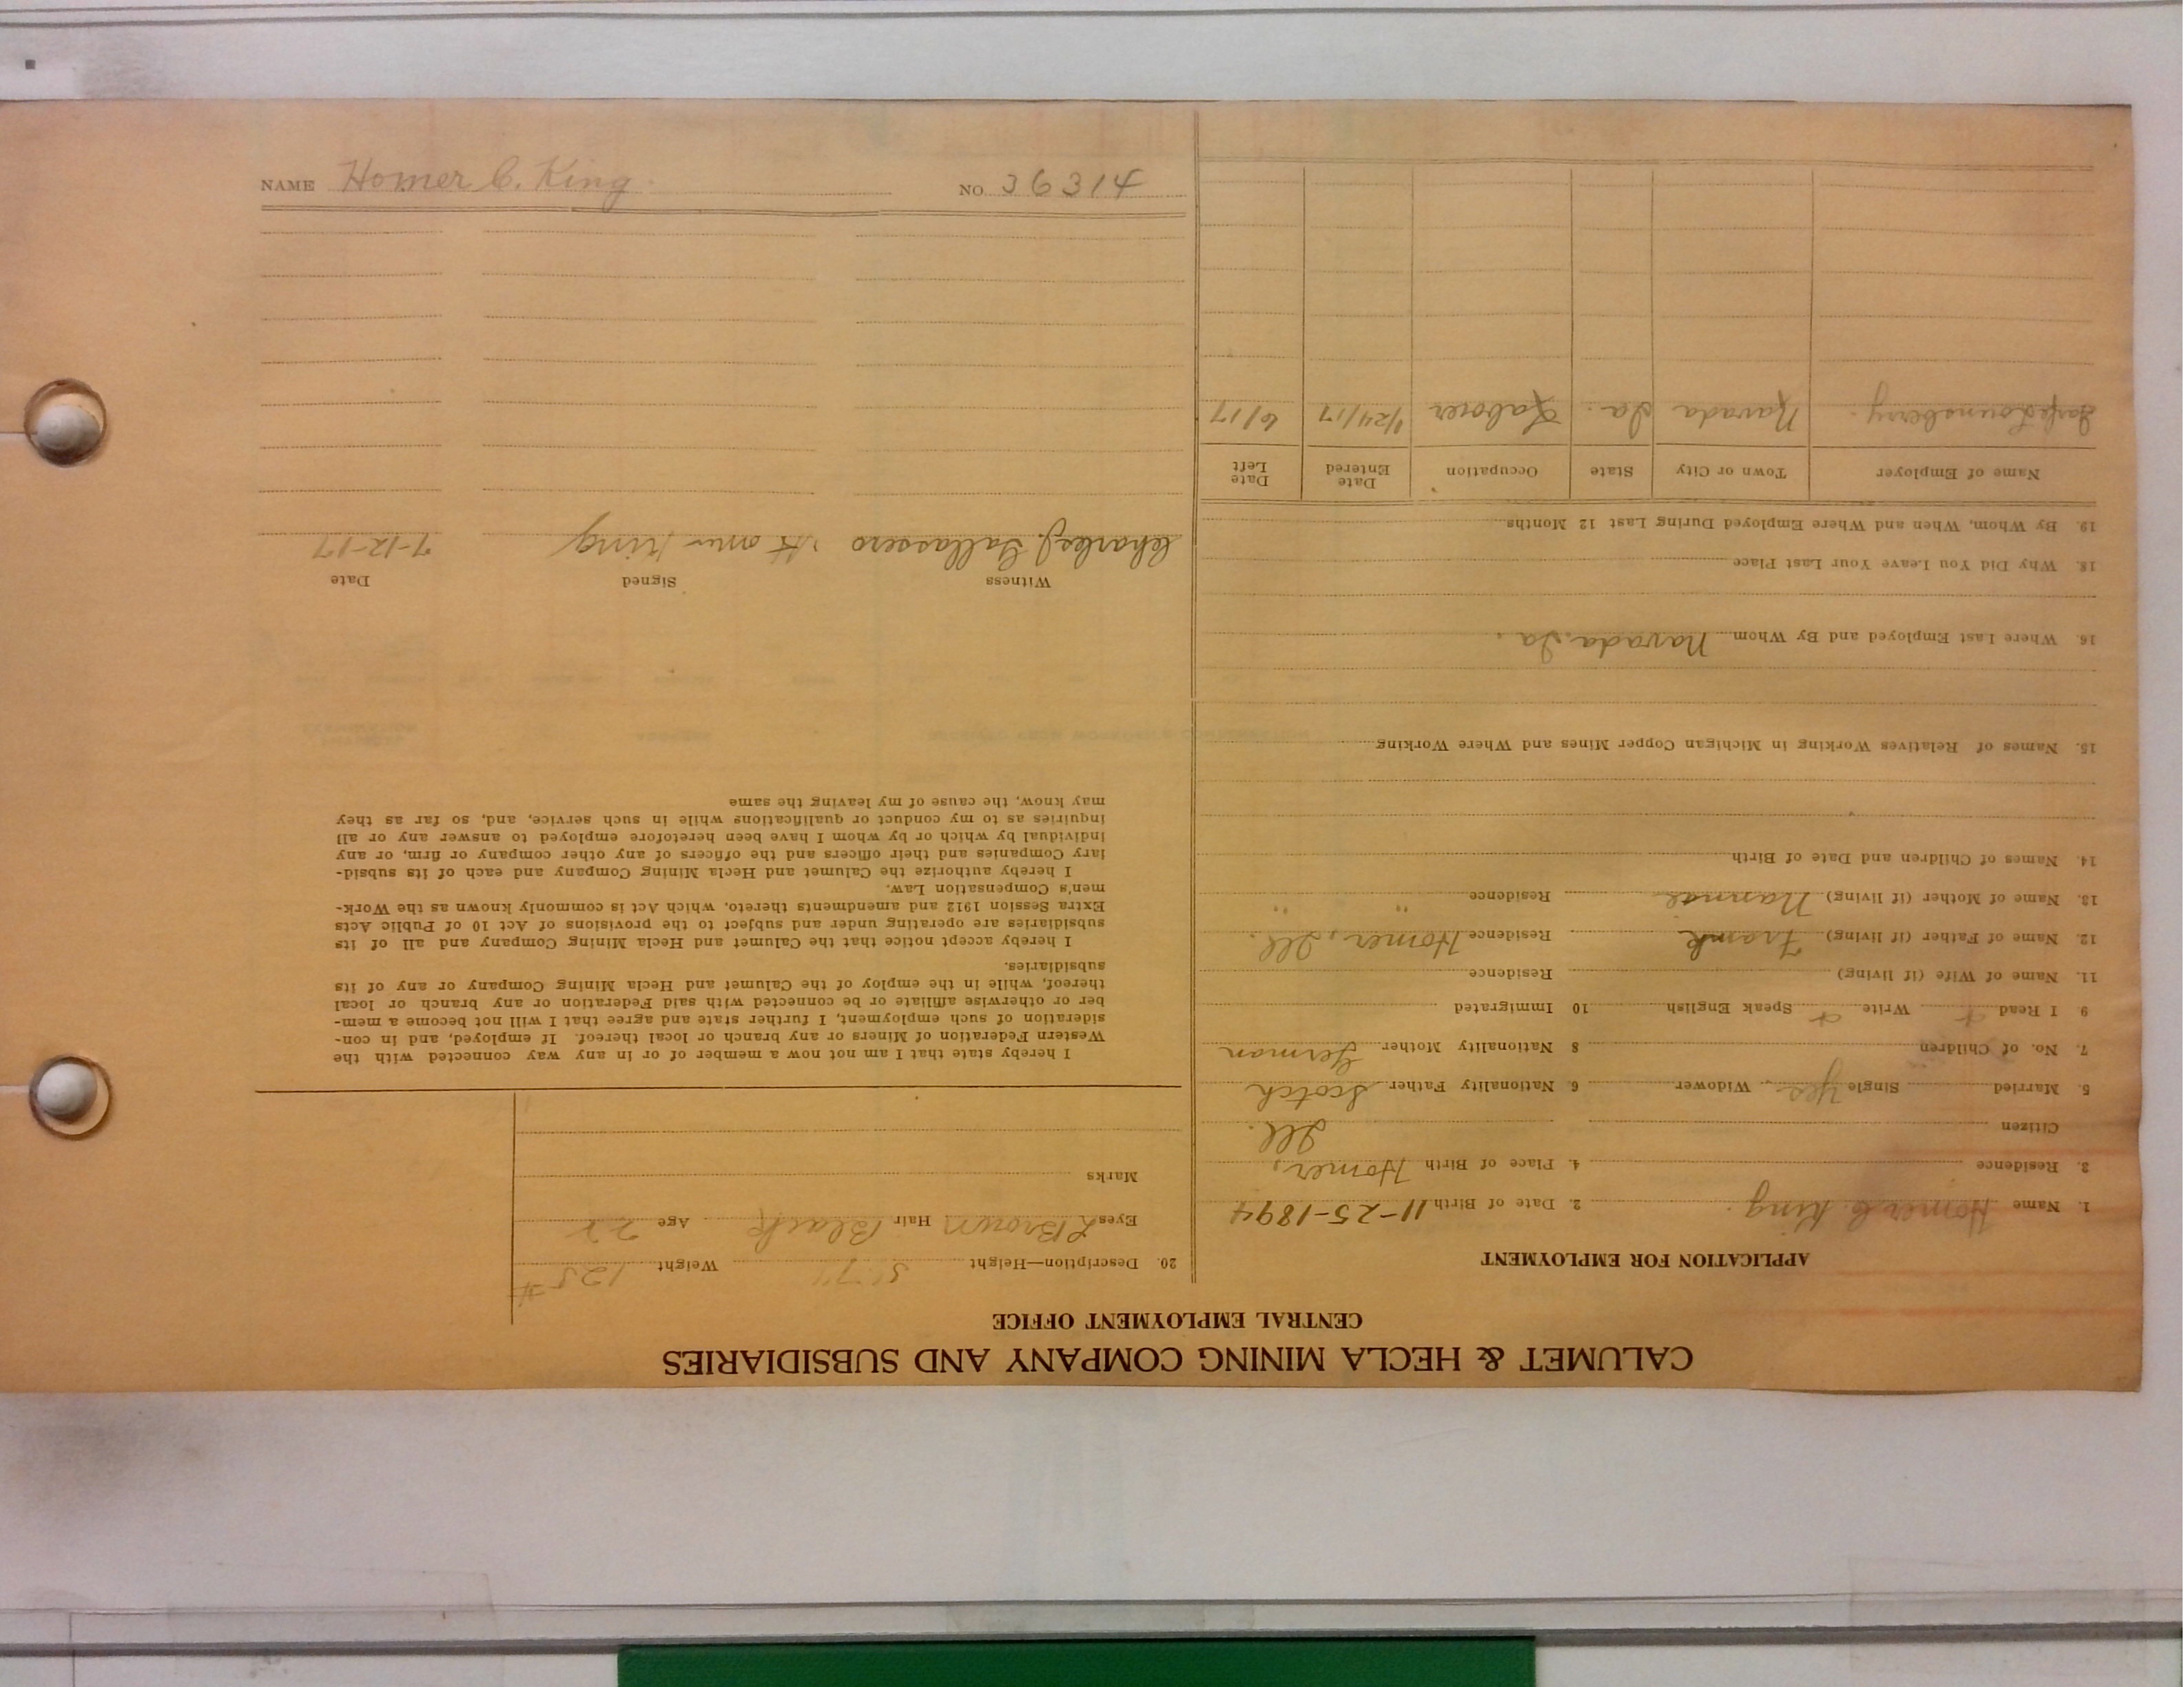 CALUMET & HECLA MINING COMPANY AND SUBSIDIARIES
CENTRAL EMPLOYMENT OFFICE
APPLICATION FOR EMPLOYMENT
1. Name Homer C. King. 2. Date of Birth 11-25-1894
3. Residence 4. Place of Birth Homer,
Citizen Ill.
5. Married Single Yes Widower 6. Nationality Father Scotch
7. No. of Children 8 Nationality Mother German
9 I Read Write Speak English 10 Immigrated
11. Name of Wife (if living) Residence
12. Name of Father (if living) Frank Residence Homer, Ill.
13. Name of Mother (if living) Residence " "
14. Names of Children and Date of Birth
15. Names of Relatives Working in Michigan Copper Mines and Where Working
16. Where Last Employed and By Whom Navada, Ia.
18. Why Did You Leave Your Last Place
19. By Whom, When and Where Employed During Last 12 Months
Name of Employer Town or City State Occupation Date Entered Date Left
Navada Ia. Laborer 1/24/17 6/17
20. Description—Height 5'.7" Weight 125#
Eyes L Brown Hair Black Age 22
Marks
I hereby state that I am not now a member of or in any way connected with the
Western Federation of Miners or any branch or local thereof. If employed, and in con-
sideration of such employment, I further state and agree that I will not become a mem-
ber or otherwise affiliate or be connected with said Federation or any branch or local
thereof, while in the employ of the Calumet and Hecla Mining Company or any of its
subsidiaries.
I hereby accept notice that the Calumet and Hecla Mining Company and all of its
subsidiaries are operating under and subject to the provisions of Act 10 of Public Acts
Extra Session 1912 and amendments thereto, which Act is commonly known as the Work-
men's Compensation Law.
I hereby authorize the Calumet and Hecla Mining Company and each of its subsid-
iary Companies and their officers and the officers of any other company or firm, or any
individual by which or by whom I have been heretofore employed to answer any or all
inquiries as to my conduct or qualifications while in such service, and, so far as they
may know, the cause of my leaving the same
Witness Signed Date
Charles J. Homer King 7-12-17
NAME Homer C. King. NO. 36314